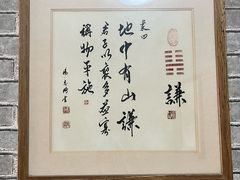 謙
象曰
地中有山謙
君子以裒多益寡
稱物平施